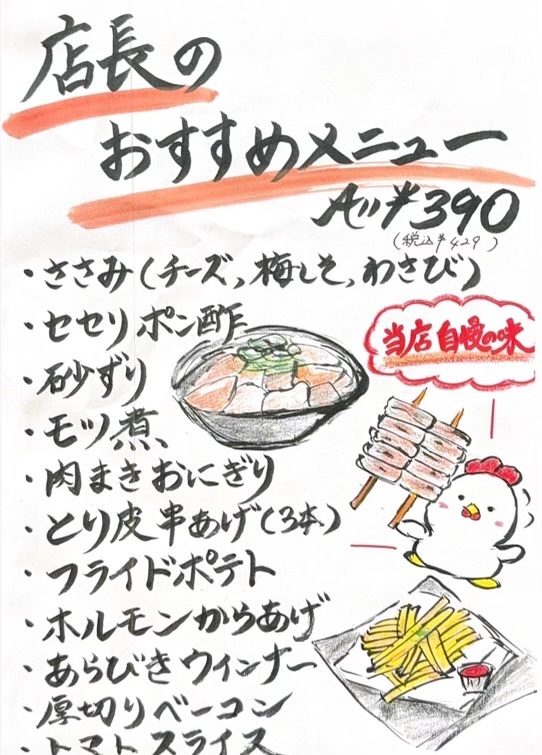 店長の
おすすめメニュー
All ¥390
(税込¥429)
・ささみ(チーズ,梅しそ,わさび)
・セセリポン酢
当店自慢の味
・砂ずり
・モツ煮
・肉まきおにぎり
・とり皮串あげ(3本)
・フライドポテト
・ホルモンからあげ
・あらびきウィンナー
・厚切りベーコン
・トマトスライス